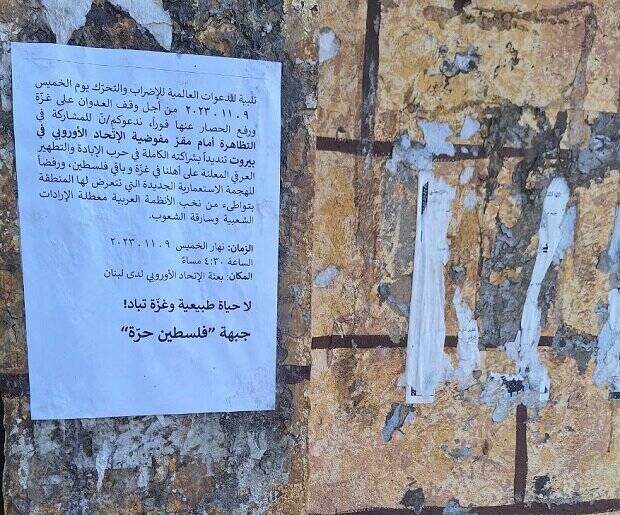 تلبية للدعوات العالمية للإضراب والتحرّك يوم الخميس
٩ .١١ .٢٠٢٣ من أجل وقف العدوان على غزّة
ورفع الحصار عنها فوراً، ندعوكم/نّ للمشاركة في
التظاهرة أمام مقرّ مفوضية الإتحاد الأوروبي في
بيروت تنديداً بشراكته الكاملة في حرب الإبادة والتطهير
العرقي المعلنة على أهلنا في غزّة و باقي فلسطين، ورفضاً
للهجمة الاستعمارية الجديدة التي تتعرض لها المنطقة
بتواطيء من نخب الأنظمة العربية معطلة الإرادات
الشعبية وسارقة الشعوب.
الزمان: نهار الخميس ٩ .١١ .٢٠٢٣
الساعة ٤:٣٠ مساءً
المكان: بعثة الإتحاد الأوروبي لدى لبنان
لا حياة طبيعية وغزّة تباد!
جبهة "فلسطين حرّة"